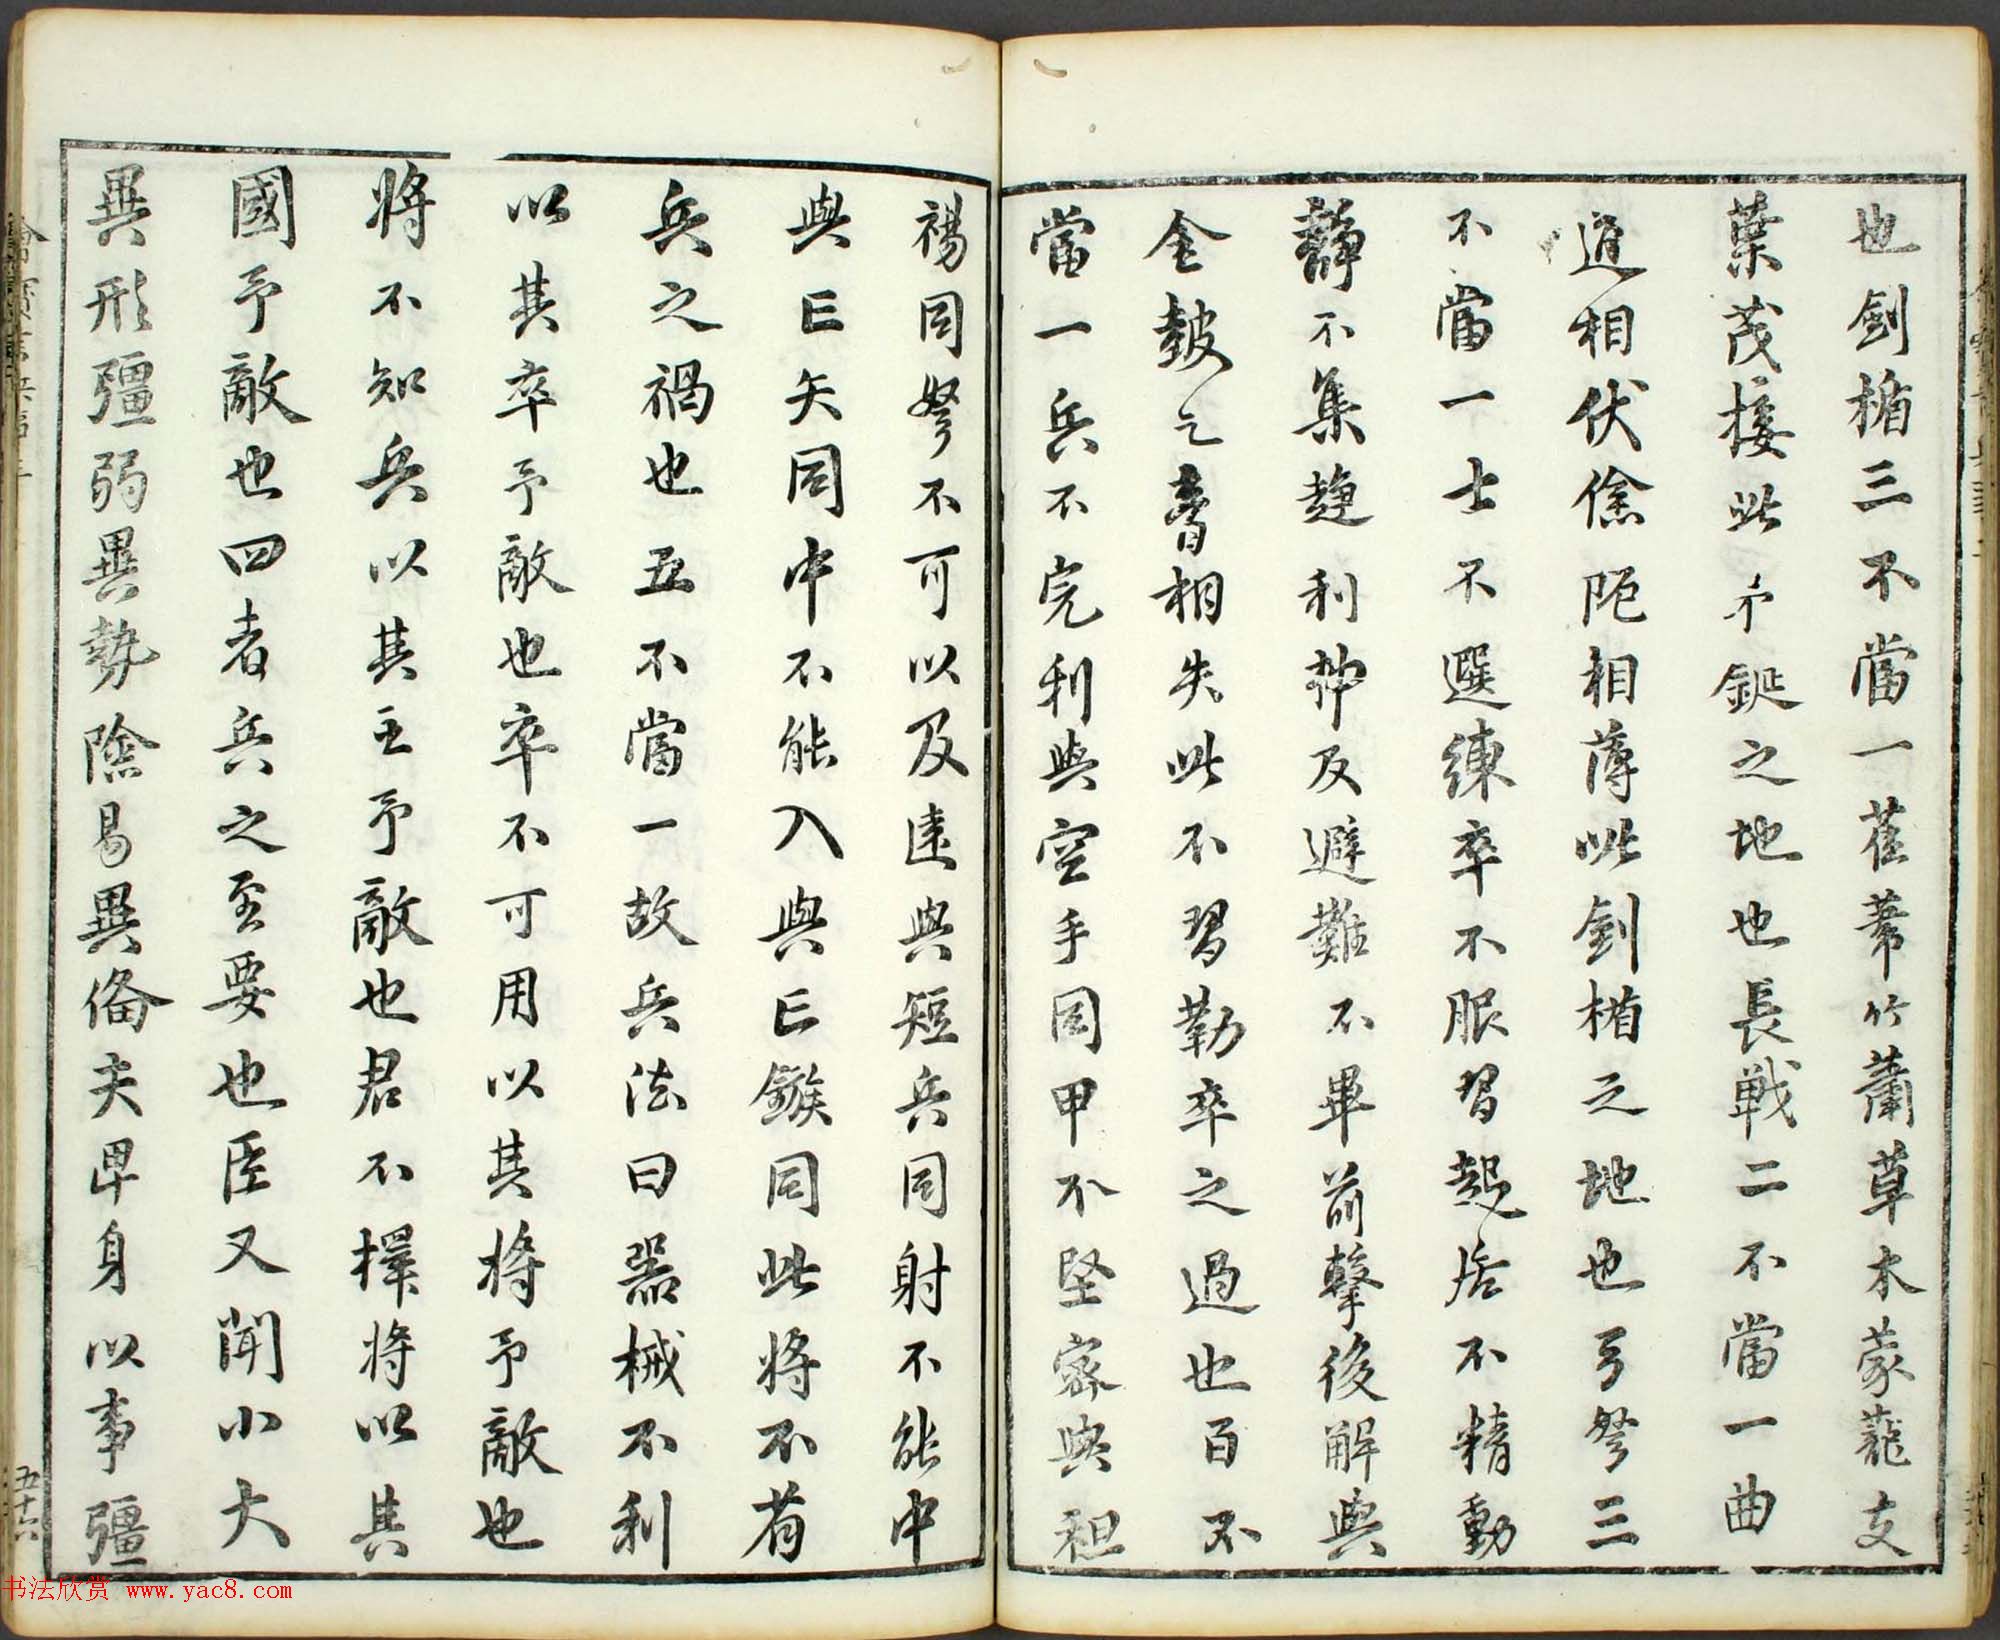 也劍楯三不當一萑葦竹蕭草木蒙蘢支
葉茂接此矛鋋之地也長戟二不當一曲
道相伏險阸相薄此劍楯之地也弓弩三
不當一士不選練卒不服習起居不精動
靜不集趨利弗及避難不畢前擊後解與
金鼓之音相失此不習勒卒之過也百不
當一兵不完利與空手同甲不堅密與袒
裼同弩不可以及遠與短兵同射不能中
與亡矢同中不能入與亡鏃同此將不省
兵之禍也五不當一故兵法曰器械不利
以其卒予敵也卒不可用以其將予敵也
將不知兵以其主予敵也君不擇將以其
國予敵也四者兵之至要也臣又聞小大
異形彊弱異勢險易異備夫卑身以事彊
五十六
书法欣赏 www.yac8.com